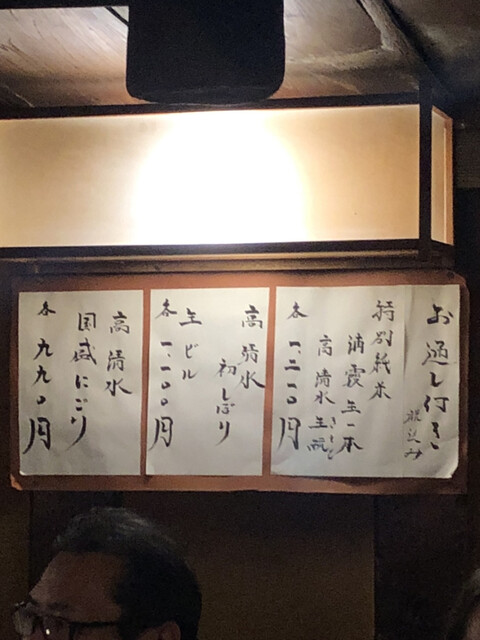 お通し付き
税込み
特別純米
浦霞 生一本
高清水 きもと
各 一、二一〇円
高清水
初しぼり
生ビル
各 一、一〇〇円
高清水
国盛にごり
各 九九〇円